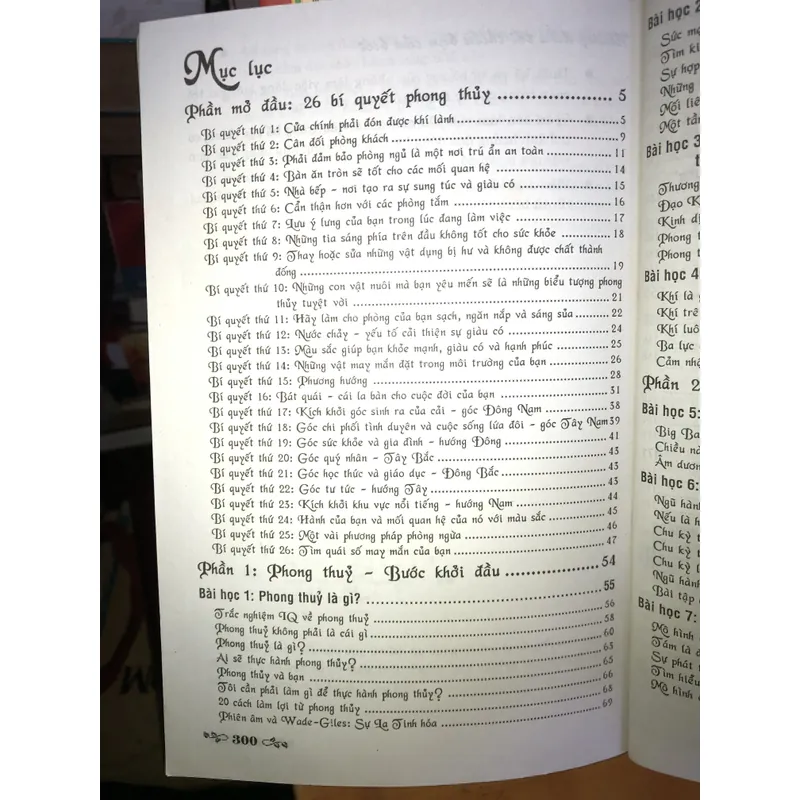 Mục lục
Phần mở đầu: 26 bí quyết phong thủy ........................ 5
Bí quyết thứ 1: Cửa chính phải đón được khí lành ........................ 5
Bí quyết thứ 2: Cân đối phòng khách ........................ 9
Bí quyết thứ 3: Phải đảm bảo phòng ngủ là một nơi trú ẩn an toàn ........................ 11
Bí quyết thứ 4: Bàn ăn tròn sẽ tốt cho các mối quan hệ ........................ 14
Bí quyết thứ 5: Nhà bếp - nơi tạo ra sự sung túc và giàu có ........................ 15
Bí quyết thứ 6: Cẩn thận hơn với các phòng tắm ........................ 16
Bí quyết thứ 7: Lưu ý lưng của bạn trong lúc đang làm việc ........................ 17
Bí quyết thứ 8: Những tia sáng phía trên đầu không tốt cho sức khỏe ........................ 18
Bí quyết thứ 9: Thay hoặc sửa những vật dụng bị hư và không được chất thành
đống ........................ 19
Bí quyết thứ 10: Những con vật nuôi mà bạn yêu mến sẽ là những biểu tượng phong
thủy tuyệt vời ........................ 21
Bí quyết thứ 11: Hãy làm cho phòng của bạn sạch, ngăn nắp và sáng sủa ........................ 22
Bí quyết thứ 12: Nước chảy - yếu tố cải thiện sự giàu có ........................ 24
Bí quyết thứ 13: Màu sắc giúp bạn khỏe mạnh, giàu có và hạnh phúc ........................ 25
Bí quyết thứ 14: Những vật may mắn đặt trong môi trường của bạn ........................ 26
Bí quyết thứ 15: Phương hướng ........................ 28
Bí quyết thứ 16: Bát quái - cái la bàn cho cuộc đời của bạn ........................ 31
Bí quyết thứ 17: Kích khởi góc sinh ra của cải - góc Đông Nam ........................ 38
Bí quyết thứ 18: Góc chi phối tình duyên và cuộc sống lứa đôi - góc Tây Nam 39
Bí quyết thứ 19: Góc sức khỏe và gia đình - hướng Đông ........................ 41
Bí quyết thứ 20: Góc quý nhân - Tây Bắc ........................ 43
Bí quyết thứ 21: Góc học thức và giáo dục - Đông Bắc ........................ 43
Bí quyết thứ 22: Góc tư tức - hướng Tây ........................ 43
Bí quyết thứ 23: Kích khởi khu vực nổi tiếng - hướng Nam ........................ 44
Bí quyết thứ 24: Hành của bạn và mối quan hệ của nó với màu sắc ........................ 45
Bí quyết thứ 25: Một vài phương pháp phòng ngừa ........................ 46
Bí quyết thứ 26: Tìm quái số may mắn của bạn ........................ 47
Phần 1: Phong thuỷ - Bước khởi đầu ........................ 54
Bài học 1: Phong thuỷ là gì? ........................ 55
Trắc nghiệm IQ về phong thuỷ ........................ 56
Phong thuỷ không phải là cái gì ........................ 58
Phong thuỷ là gì? ........................ 60
Ai sẽ thực hành phong thủy? ........................ 63
Phong thủy và bạn ........................ 65
Tôi cần phải làm gì để thực hành phong thuỷ? ........................ 66
20 cách làm lợi từ phong thủy ........................ 68
Phiên âm và Wade-Giles: Sự La Tinh hóa ........................ 69
300
Bài học 2
Sức mạ
Tìm ki
Sự hợp
Những
Mối liê
Một tầ
Bài học 3
Thương
Đạo K
Kinh dị
Phong t
Phong t
Bài học 4
Khí là g
Khí trê
Khí luô
Ba lực
Cảm nhậ
Phần 2
Bài học 5:
Big Ba
Chiều nà
Âm dươn
Bài học 6:
Ngũ hành
Nếu là h
Chu kỳ t
Chu kỳ t
Chu kỳ
Ngũ hành
Bài tập
Bài học 7:
Mô hình
Tâm là đ
Sự phát
Tìm hiểu
Mô hình